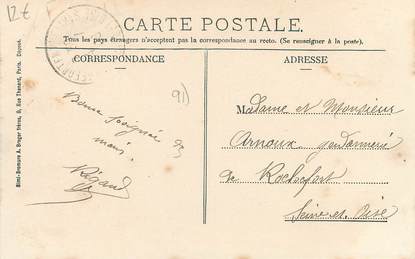 12€
CARTE POSTALE.
Tous les pays étrangers n'acceptent pas la correspondance au recto. (Se renseigner à la poste).
CORRESPONDANCE
ADRESSE
91)
Bonne poignée
main.
Rigaud
Madame et Monsieur
Arnoux gendarmerie
de Rochefort
Seine et Oise
Simi-Bromure A. Breger frères, 9, Rue Thénard, Paris. Déposé.